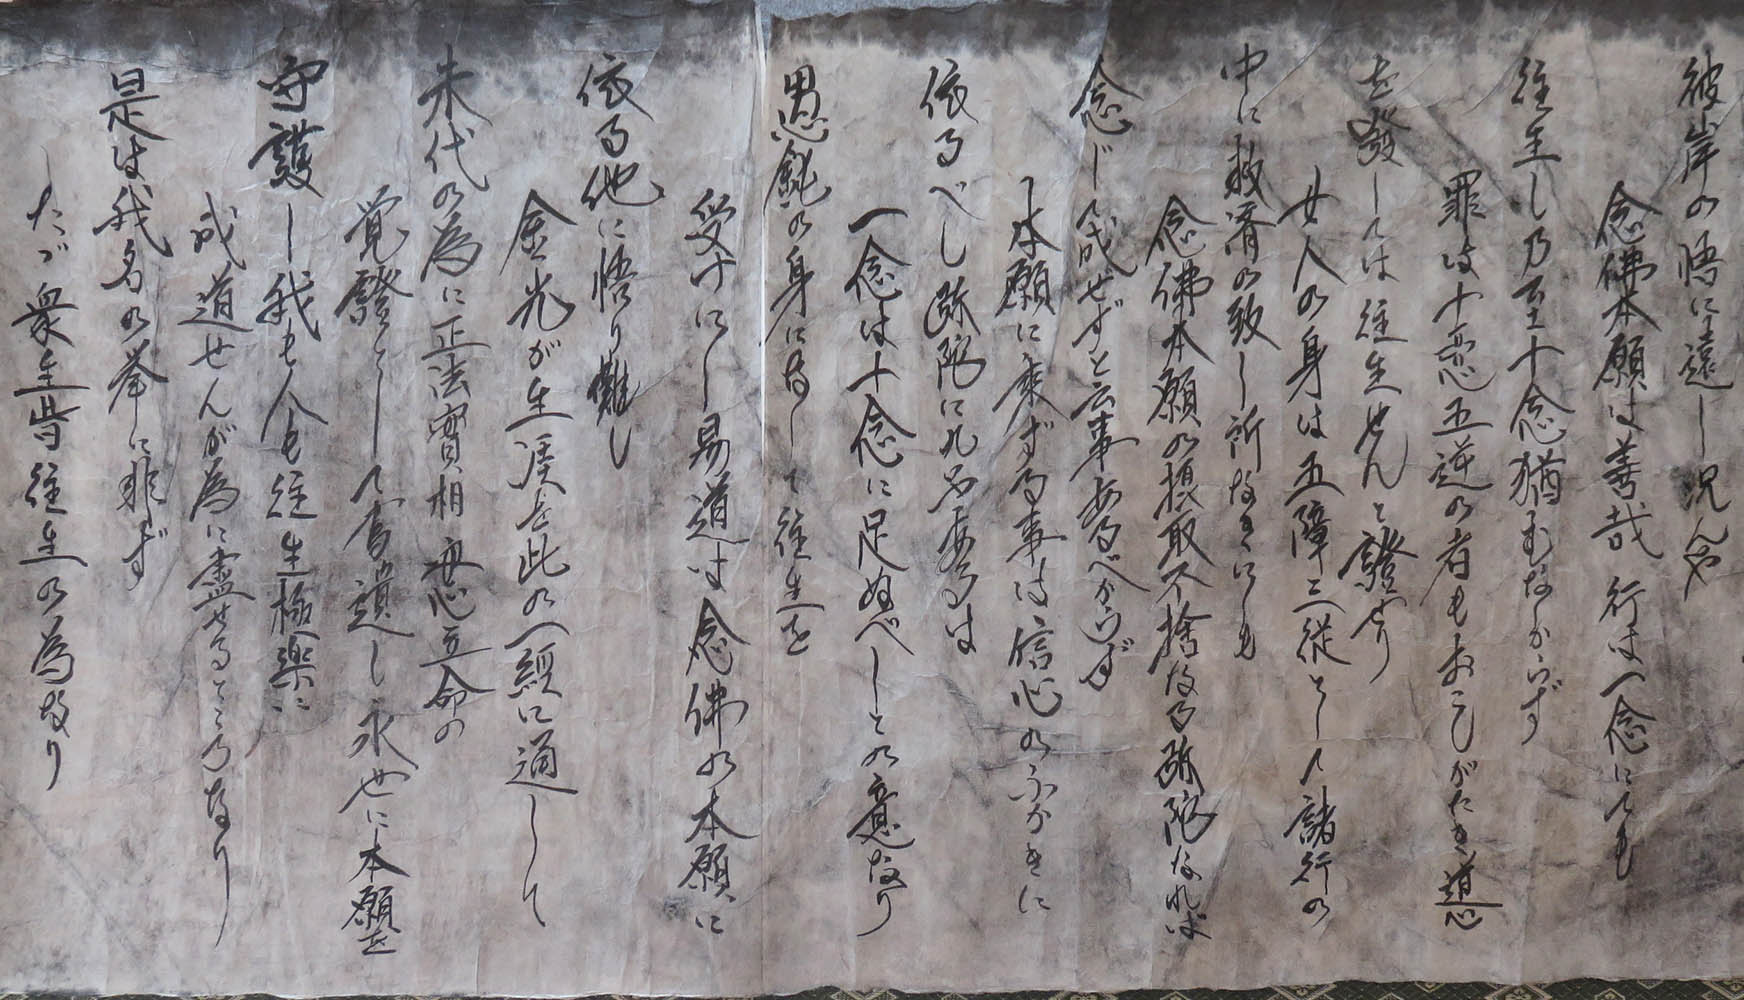 彼岸の悟に遠し況んや
念佛本願は善哉 行は一念にても
往生し乃至十念猶むなからず
罪は十悪五逆の者もおこしがたき道心
を發しては往生せんと證せり
女人の身は五障三従として諸行の
中に救済の致し所なきにも
念佛本願の摂取不捨なる弥陀なれば
念じて成せずと云事あるべからず
本願に乘ずる事は信心のふかきに
依るべし 弥陀に九品あるは
一念は十念に足ぬべしとの意なり
愚鈍の身になして往生を
受けにし易道は念佛の本願に
依る他に悟り難し
金光が生涯を此の一經に通して
末代の為に正法實相安心立命の
覚證として書遺し永世に本願を
守護し我も人も往生極楽に
成道せんが為に盡せるところなり
是は我名の挙に非ず
たゞ衆生皆往生の為なり